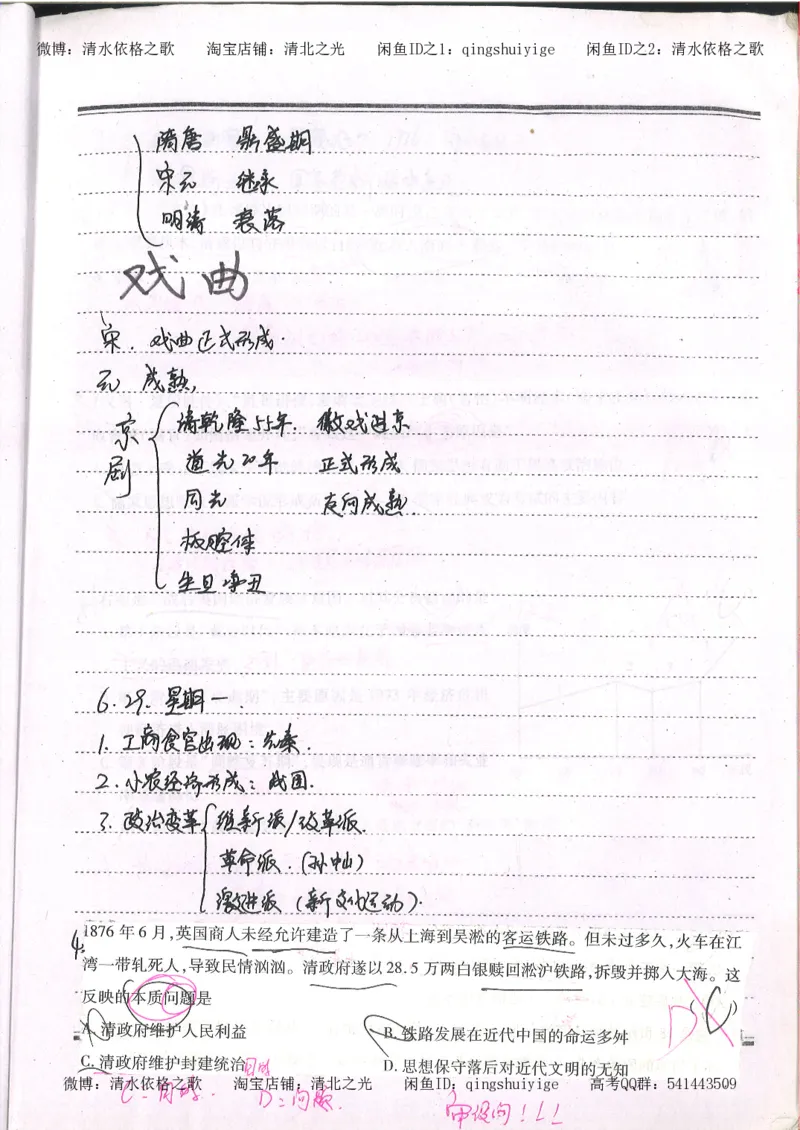 微博：清水依格之歌 淘宝店铺：清北之光 闲鱼ID之1：qingshuiyige 闲鱼ID之2：清水依格之歌
隋唐 鼎盛期
宋元 继承
明清 衰落
戏曲
宋. 戏曲正式形成.
元 成熟.
京剧
清乾隆55年. 徽戏进京
道光20年 正式形成
同光 走向成熟.
板腔体
生旦净丑
6.29. 星期一.
1. 工商食官出现：先秦.
2. 小农经济形成：战国.
3. 政治变革 维新派/改革派.
革命派.(孙中山)
激进派 (新文化运动).
4. 1876年6月,英国商人未经允许建造了一条从上海到吴淞的客运铁路。但未过多久,火车在江
湾一带轧死人,导致民情汹汹。清政府遂以28.5万两白银赎回淞沪铁路,拆毁并掷入大海。这
反映的本质问题是 ( C )
A. 清政府维护人民利益 B. 铁路发展在近代中国的命运多舛
C. 清政府维护封建统治 目的 D. 思想保守落后对近代文明的无知
微博：清水依格之歌 淘宝店铺：清北之光 闲鱼ID：qingshuiyige 高考QQ群：541443509
C：目的. D：问题.
审设问!!!